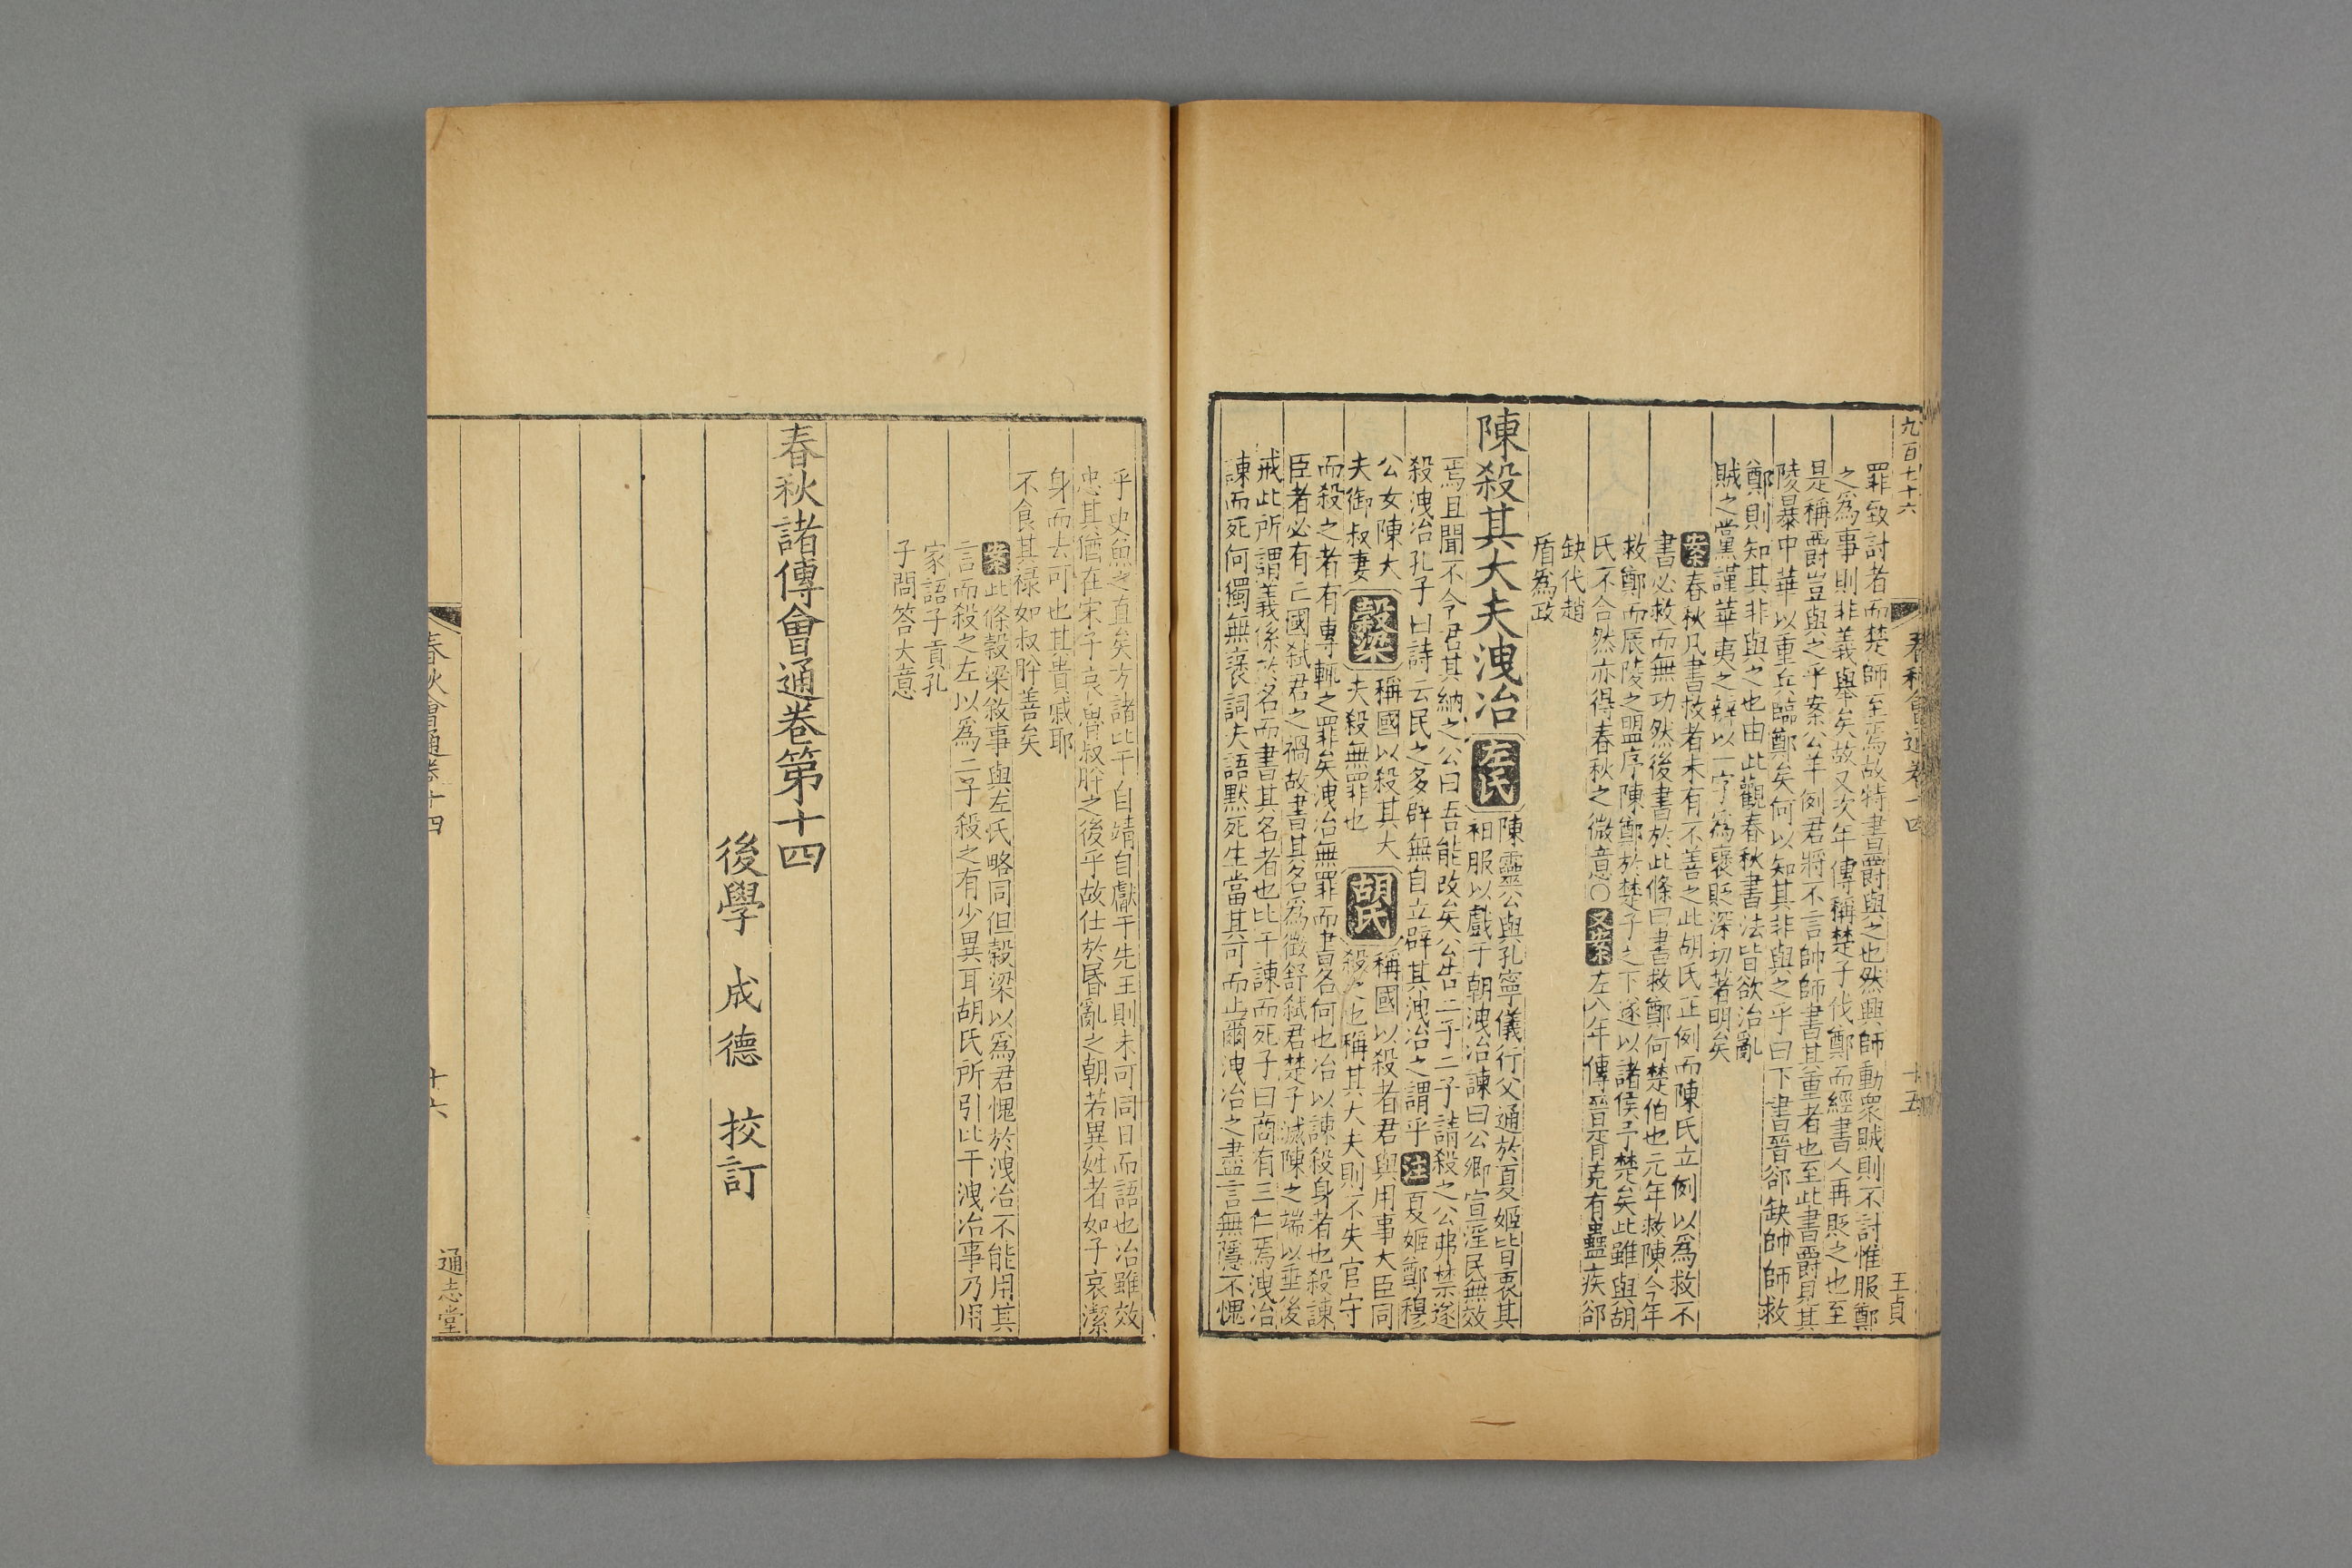 九百七十六
春秋會通卷十四
十五
王貞
罪致討者而楚師至焉故特書爵與之也然興師動衆賊則不討惟服鄭
之爲事則非義舉矣故又次年傳稱楚子伐鄭而經書人再貶之也至
是稱爵豈與之乎案公羊例君將不言帥師書其重者也至此書爵見其
陵暴中華以重兵臨鄭矣何以知其非與之乎曰下書晉郤缺帥師救
鄭則知其非與之也由此觀春秋書法皆欲治亂
賊之黨謹華夷之辨以一字爲襃貶深切著明矣
案春秋凡書救者未有不善之此胡氏正例而陳氏立例以爲救不
書必救而無功然後書於此條曰書救鄭何楚伯也元年救陳今年
救鄭而辰陵之盟序陳鄭於楚子之下遂以諸侯予楚矣此雖與胡
氏不合然亦得春秋之微意〇又案左八年傳晉胥克有蠱疾郤
缺代趙
盾爲政
陳殺其大夫洩冶左氏陳靈公與孔寧儀行父通於夏姬皆衷其
衵服以戲于朝洩冶諫曰公卿宣淫民無效
焉且聞不令君其納之公曰吾能改矣公告二子二子請殺之公弗禁遂
殺洩冶孔子曰詩云民之多辟無自立辟其洩冶之謂乎注夏姬鄭穆
公女陳大
夫御叔妻穀梁稱國以殺其大
夫殺無罪也胡氏稱國以殺者君與用事大臣同
殺之也稱其大夫則不失官守
而殺之者有專輒之罪矣洩冶無罪而書名何也冶以諫殺身者也殺諫
臣者必有亡國弑君之禍故書其名爲徵舒弑君楚子滅陳之端以垂後
戒此所謂義係於名而書其名者也比干諫而死子曰商有三仁焉洩冶
諫而死何獨無襃詞夫語默死生當其可而止爾洩冶之盡言無隱不愧
乎史魚之直矣方諸比干自靖自獻于先王則未可同日而語也冶雖效
忠其猶在宋子哀魯叔肸之後乎故仕於昬亂之朝若異姓者如子哀潔
身而去可也其貴戚耶
不食其祿如叔肸善矣
案此條穀梁敘事與左氏略同但穀梁以爲君愧於洩冶不能用其
言而殺之左以爲二子殺之有少異耳胡氏所引比干洩冶事乃用
家語子貢孔
子問答大意
春秋諸傳會通卷第十四
後學 成德 挍訂
春秋會通卷十四
十六
通志堂